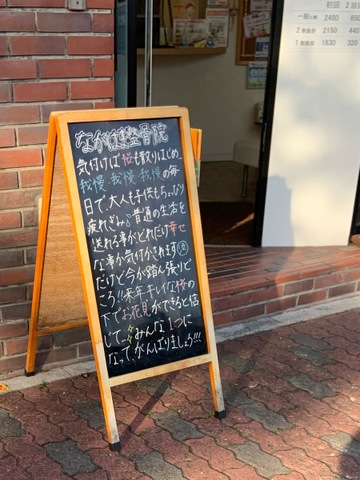 なかはま整骨院
気付けば桜も散りはじめ
我慢・我慢・我慢の毎
日で大人も子供もちょっぴり
疲れぎみ。普通の生活を
送れる事がどれだけ幸せ
な事か気付かされます
だけど今が踏ん張りど
ころ!!来年キレイな桜の
下でお花見ができると信
じて… みんな1つに
なって、がんばりましょう!!!
初回
2回目
2480
2650
2150
440
1830
330